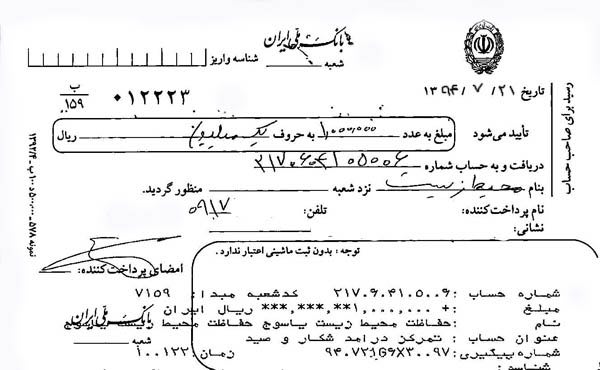 بانک ملی ایران
شعبه
شناسه واریز
تاریخ ۱۳۹۴/۷/۲۱
ب
۱۵۹
۰۱۲۲۲۳
تأیید می‌شود
مبلغ به عدد ۱,۰۰۰,۰۰۰ به حروف یک میلیون ریال
دریافت و به حساب شماره ۲۱۷۰۶۰۴۱۰۵۰۰۶
بنام محیط زیست نزد شعبه منظور گردید.
نام پرداخت‌کننده: تلفن: ۰۹۱۷
نشانی:
امضای پرداخت‌کننده:
توجه: بدون ثبت ماشینی اعتبار ندارد.
شماره حساب: ۲۱۷۰۶۰۴۱۰۵۰۰۶ کدشعبه مبدا: ۷۱۵۹
مبلغ: + ۱,۰۰۰,۰۰۰**,***,*** ریال ایران
نام: حفاظت محیط زیست یاسوج حفاظت محیط زیست یاسوج
عنوان حساب: تمرکز درامد شکار و صید
شماره پیگیری: ۹۴۰۷۲۱G۶X۳۰۰۹۷ زمان: ۱۰۰۱۲۲
شناسه:
بانک ملی ایران
شعبه
رسید برای صاحب حساب